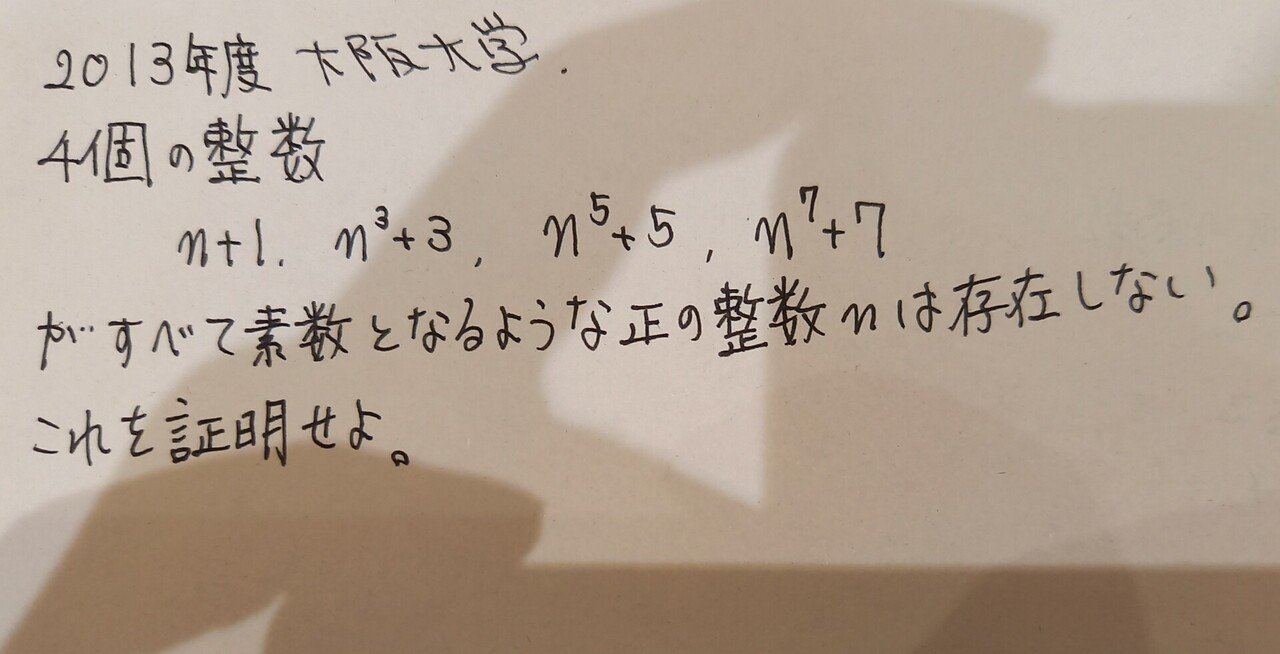 2013年度 大阪大学.
4個の整数
n+1. n³+3, n⁵+5, n⁷+7
がすべて素数となるような正の整数nは存在しない。
これを証明せよ。